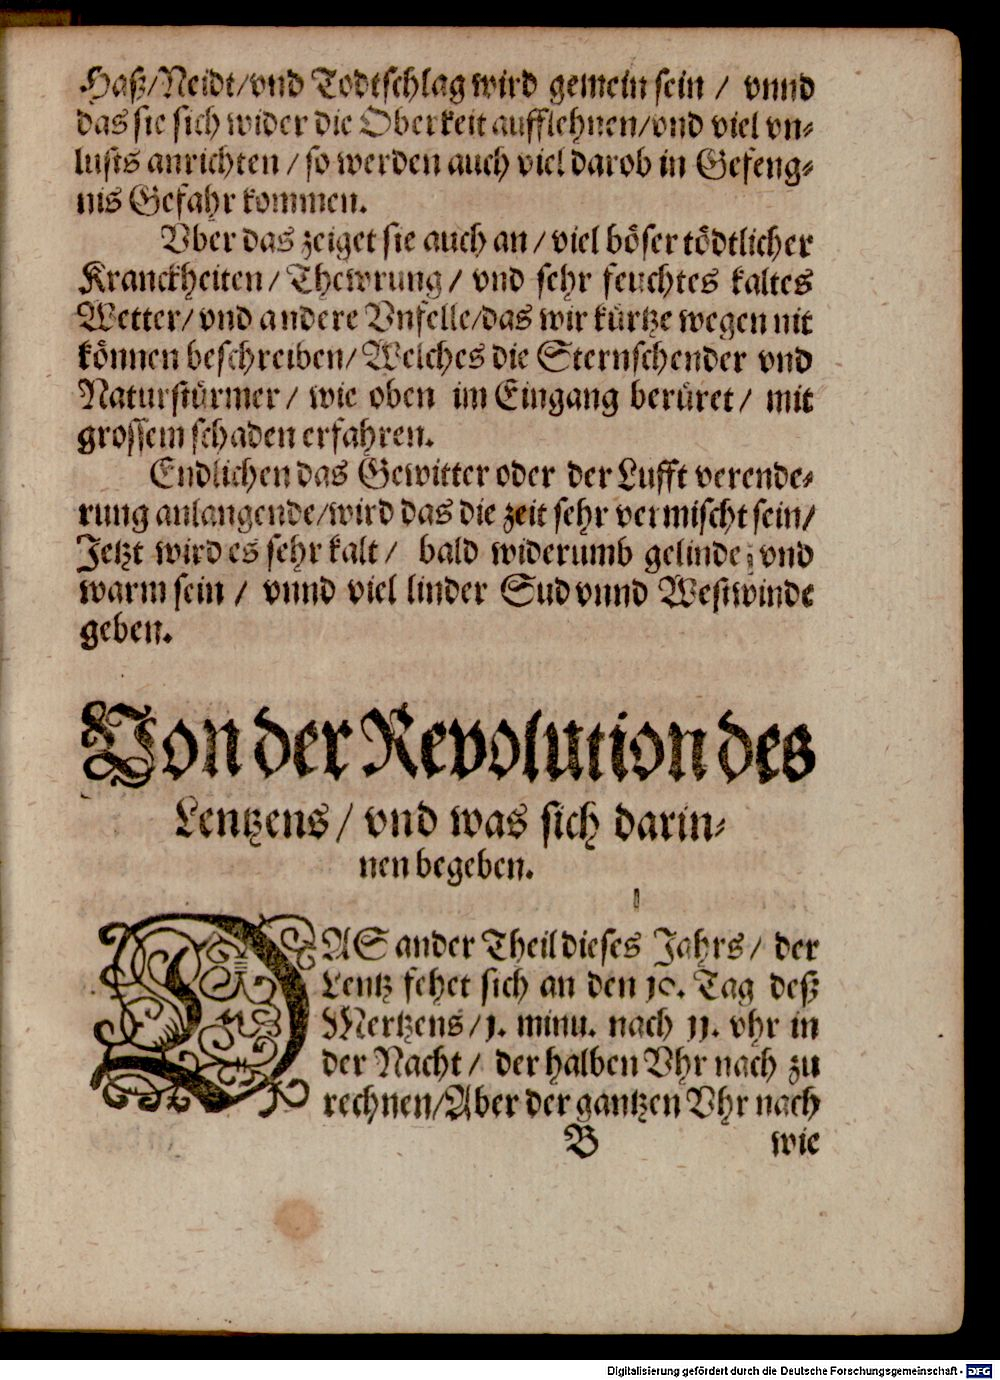 Haß/Neidt/vnd Todtschlag wird gemein sein / vnnd
das sie sich wider die Oberkeit aufflehnen/vnd viel vn⸗
lusts anrichten / so werden auch viel darob in Gefeng⸗
nis Gefahr kommen.
Vber das zeiget sie auch an / viel böser tödtlicher
Kranckheiten / Thewrung / vnd sehr feuchtes kaltes
Wetter/ vnd andere Vnfelle/das wir kürtze wegen nit
können beschreiben/ Welches die Sternschender vnd
Naturstürmer / wie oben im Eingang berüret / mit
grossem schaden erfahren.
Endlichen das Gewitter oder der Lufft verende⸗
rung anlangende/wird das die zeit sehr vermischt sein/
Jetzt wird es sehr kalt / bald widerumb gelinde vnd
warm sein / vnnd viel linder Sud vnnd Westwinde
geben.
Von der Revolution des
Lentzens / vnd was sich darin⸗
nen begeben.
DAS ander Theil dieses Jahrs / der
Lentz fehet sich an den 10. Tag deß
Mertzens / 1. minu. nach 11. vhr in
der Nacht / der halben Vhr nach zu
rechnen/Aber der gantzen Vhr nach
B wie
Digitalisierung gefördert durch die Deutsche Forschungsgemeinschaft - DFG